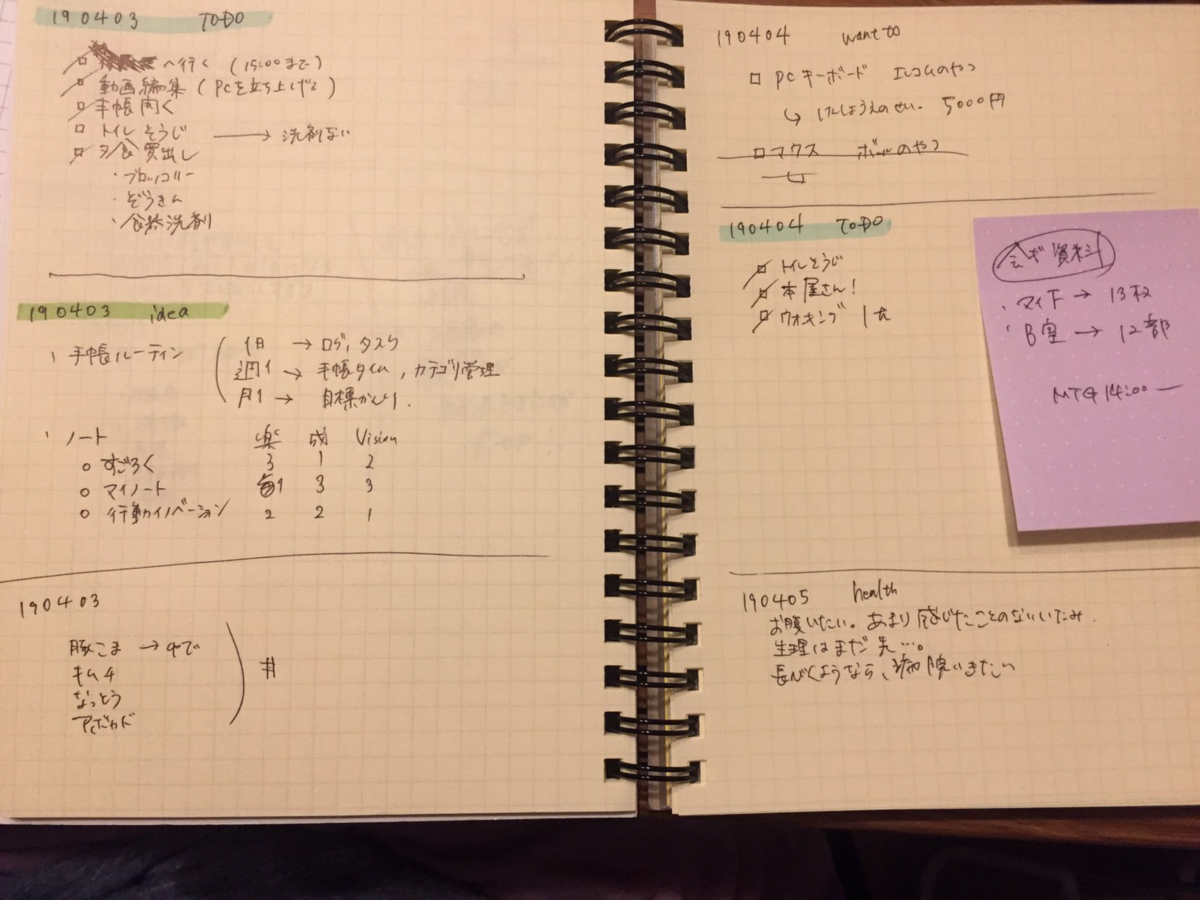 190403 TODO
□ へ行く (15:00まで)
□ 動画編集 (PCを立ち上げる)
□ 手帳開く
□ トイレそうじ → 洗剤ない
□ 夕食買出し
・ブロッコリー
・ぞうきん
・食器洗剤
190403 idea
・手帳ルーティン
1日 → ログ, タスク
週1 → 手帳タイム, カテゴリ管理
月1 → 目標かんり.
・ノート 楽 成 Vision
○ すごろく 3 1 2
○ マイノート 1 3 3
○ 行動イノベーション 2 2 1
190403
豚こま → ゆで
キムチ
なっとう
アボカド
丼
190404 want to
□ PCキーボード エレコムのやつ
↳ けんしょうえんのせい. 5000円
□ マウス ボールのやつ
190404 TODO
□ トイレそうじ
□ 本屋さん!
□ ウォキング
会ギ資料
・マイF → 13枚
・B室 → 12部
MTG 14:00 —
190405 health
お腹いたい。あまり感じたことのないいたみ.
生理はまだ先…。
長びくようなら、病院いきたい